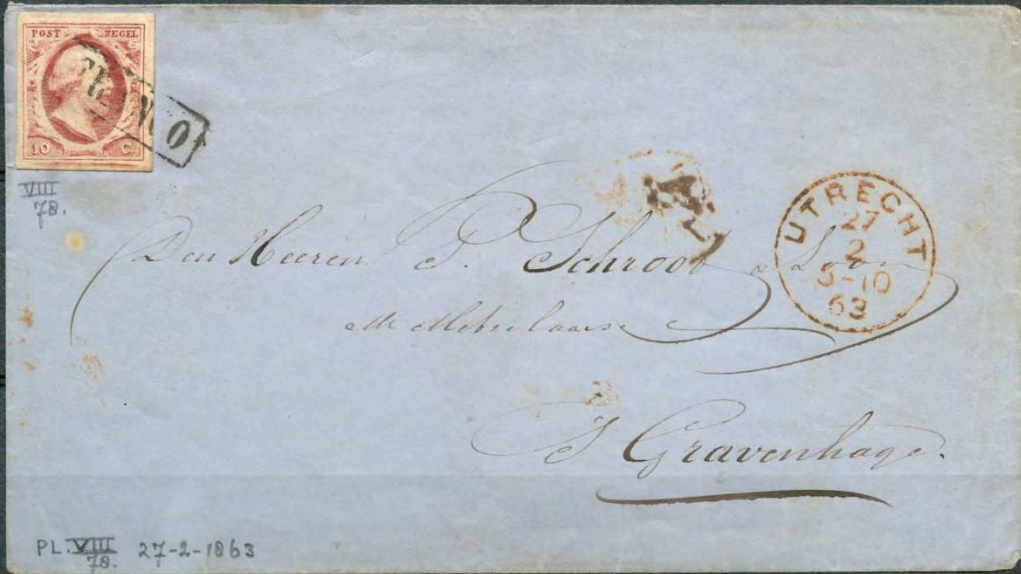 POST ZEGEL
FRANCO
10 C
VIII
78.
UTRECHT
27
2
5-10
63
Den Heeren P. Schroot & Zoon
Mr Metselaars
S Gravenhage.
PL. VIII
78. 27-2-1863